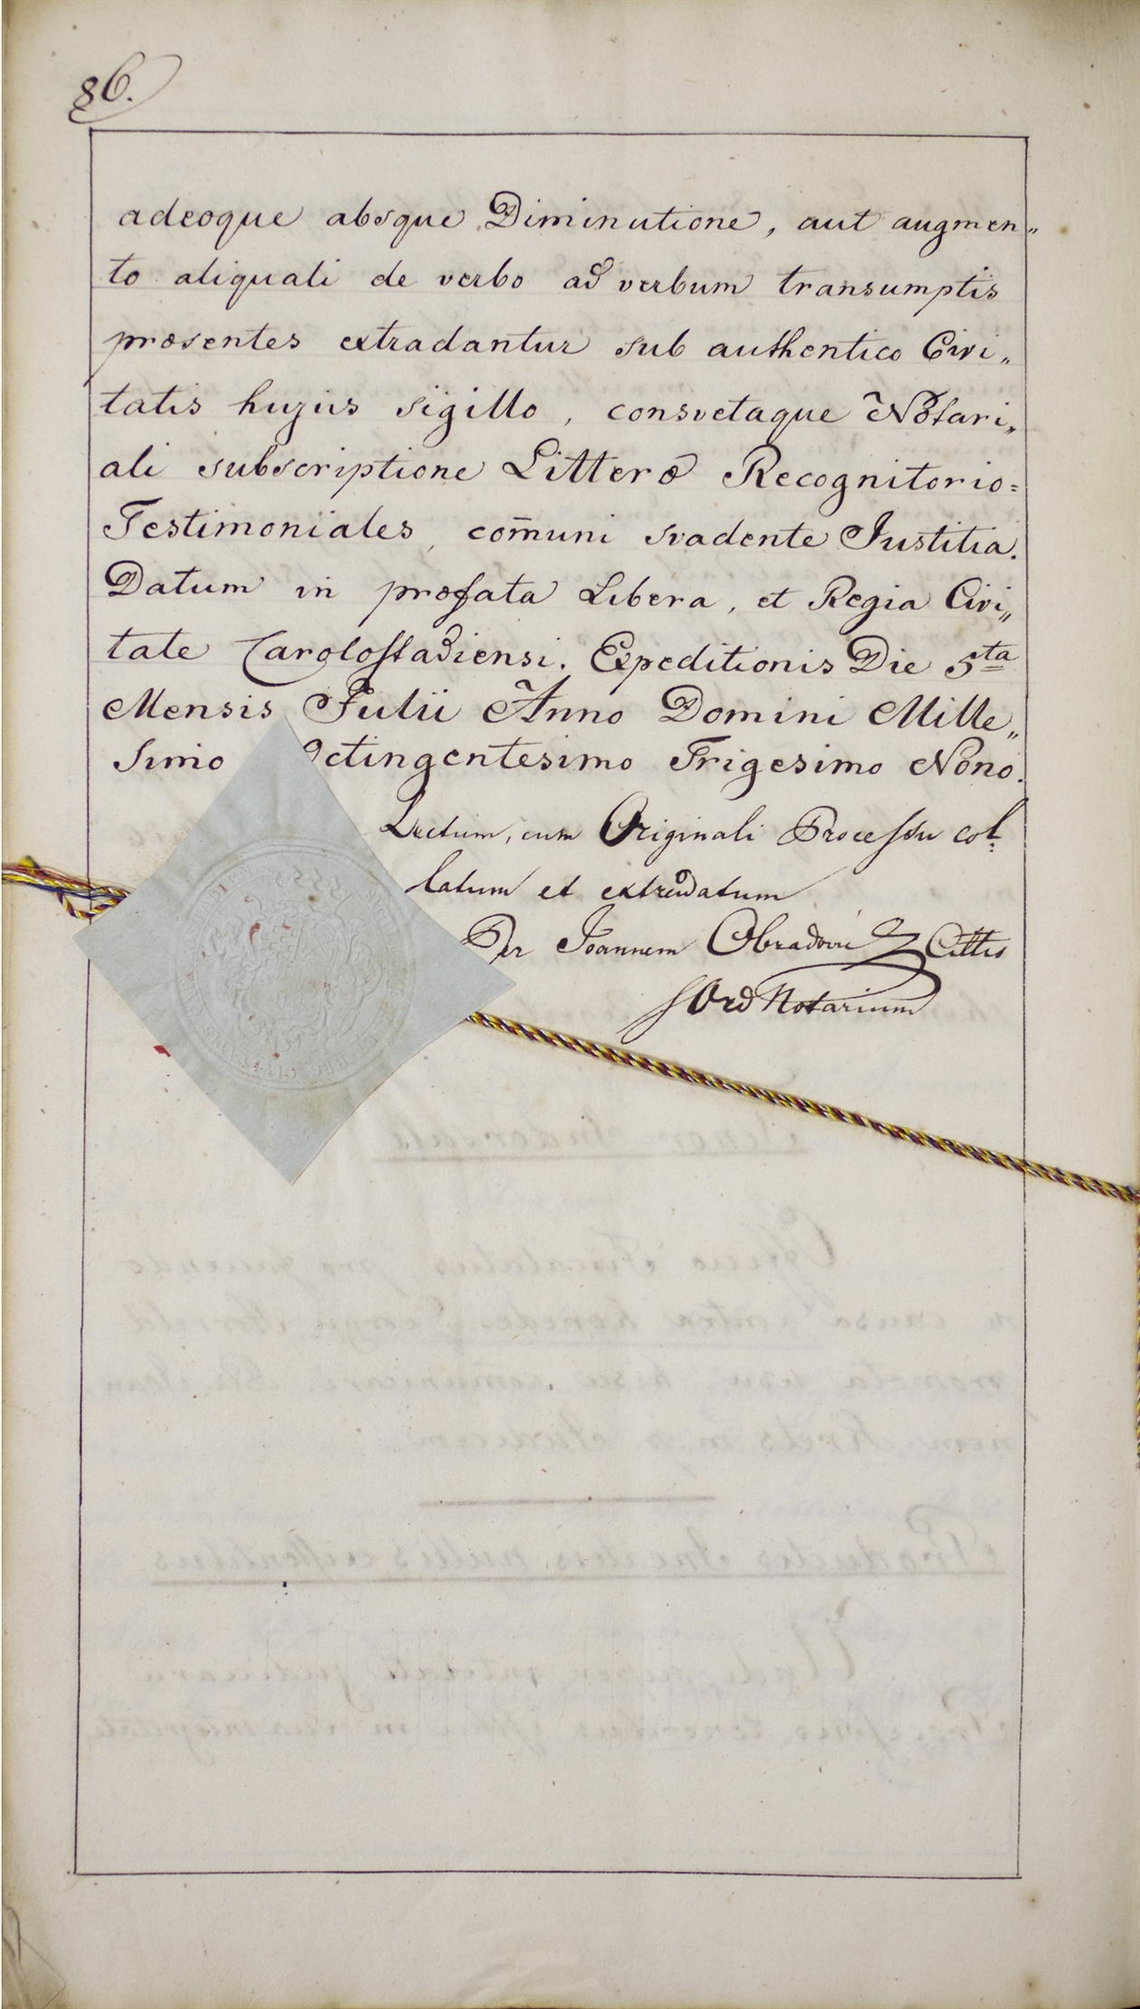 86.
adeoque absque Diminutione, aut augmen„
to aliquali de verbo ad verbum transumptis
præsentes extradantur sub authentico Civi„
tatis hujus sigillo, consvetaque Notari„
ali subscriptione Litteræ Recognitorio=
Testimoniales, com̄uni svadente Justitia.
Datum in præfata Libera, et Regia Civi„
tate Carolostadiensi. Expeditionis Die 5ta
Mensis Julii Anno Domini Mille„
simo Octingentesimo Trigesimo Nono.
Lectum, cum Originali Processu col
latum et extradatum
Per Joannem Obradović Cittis
Ord Notarium